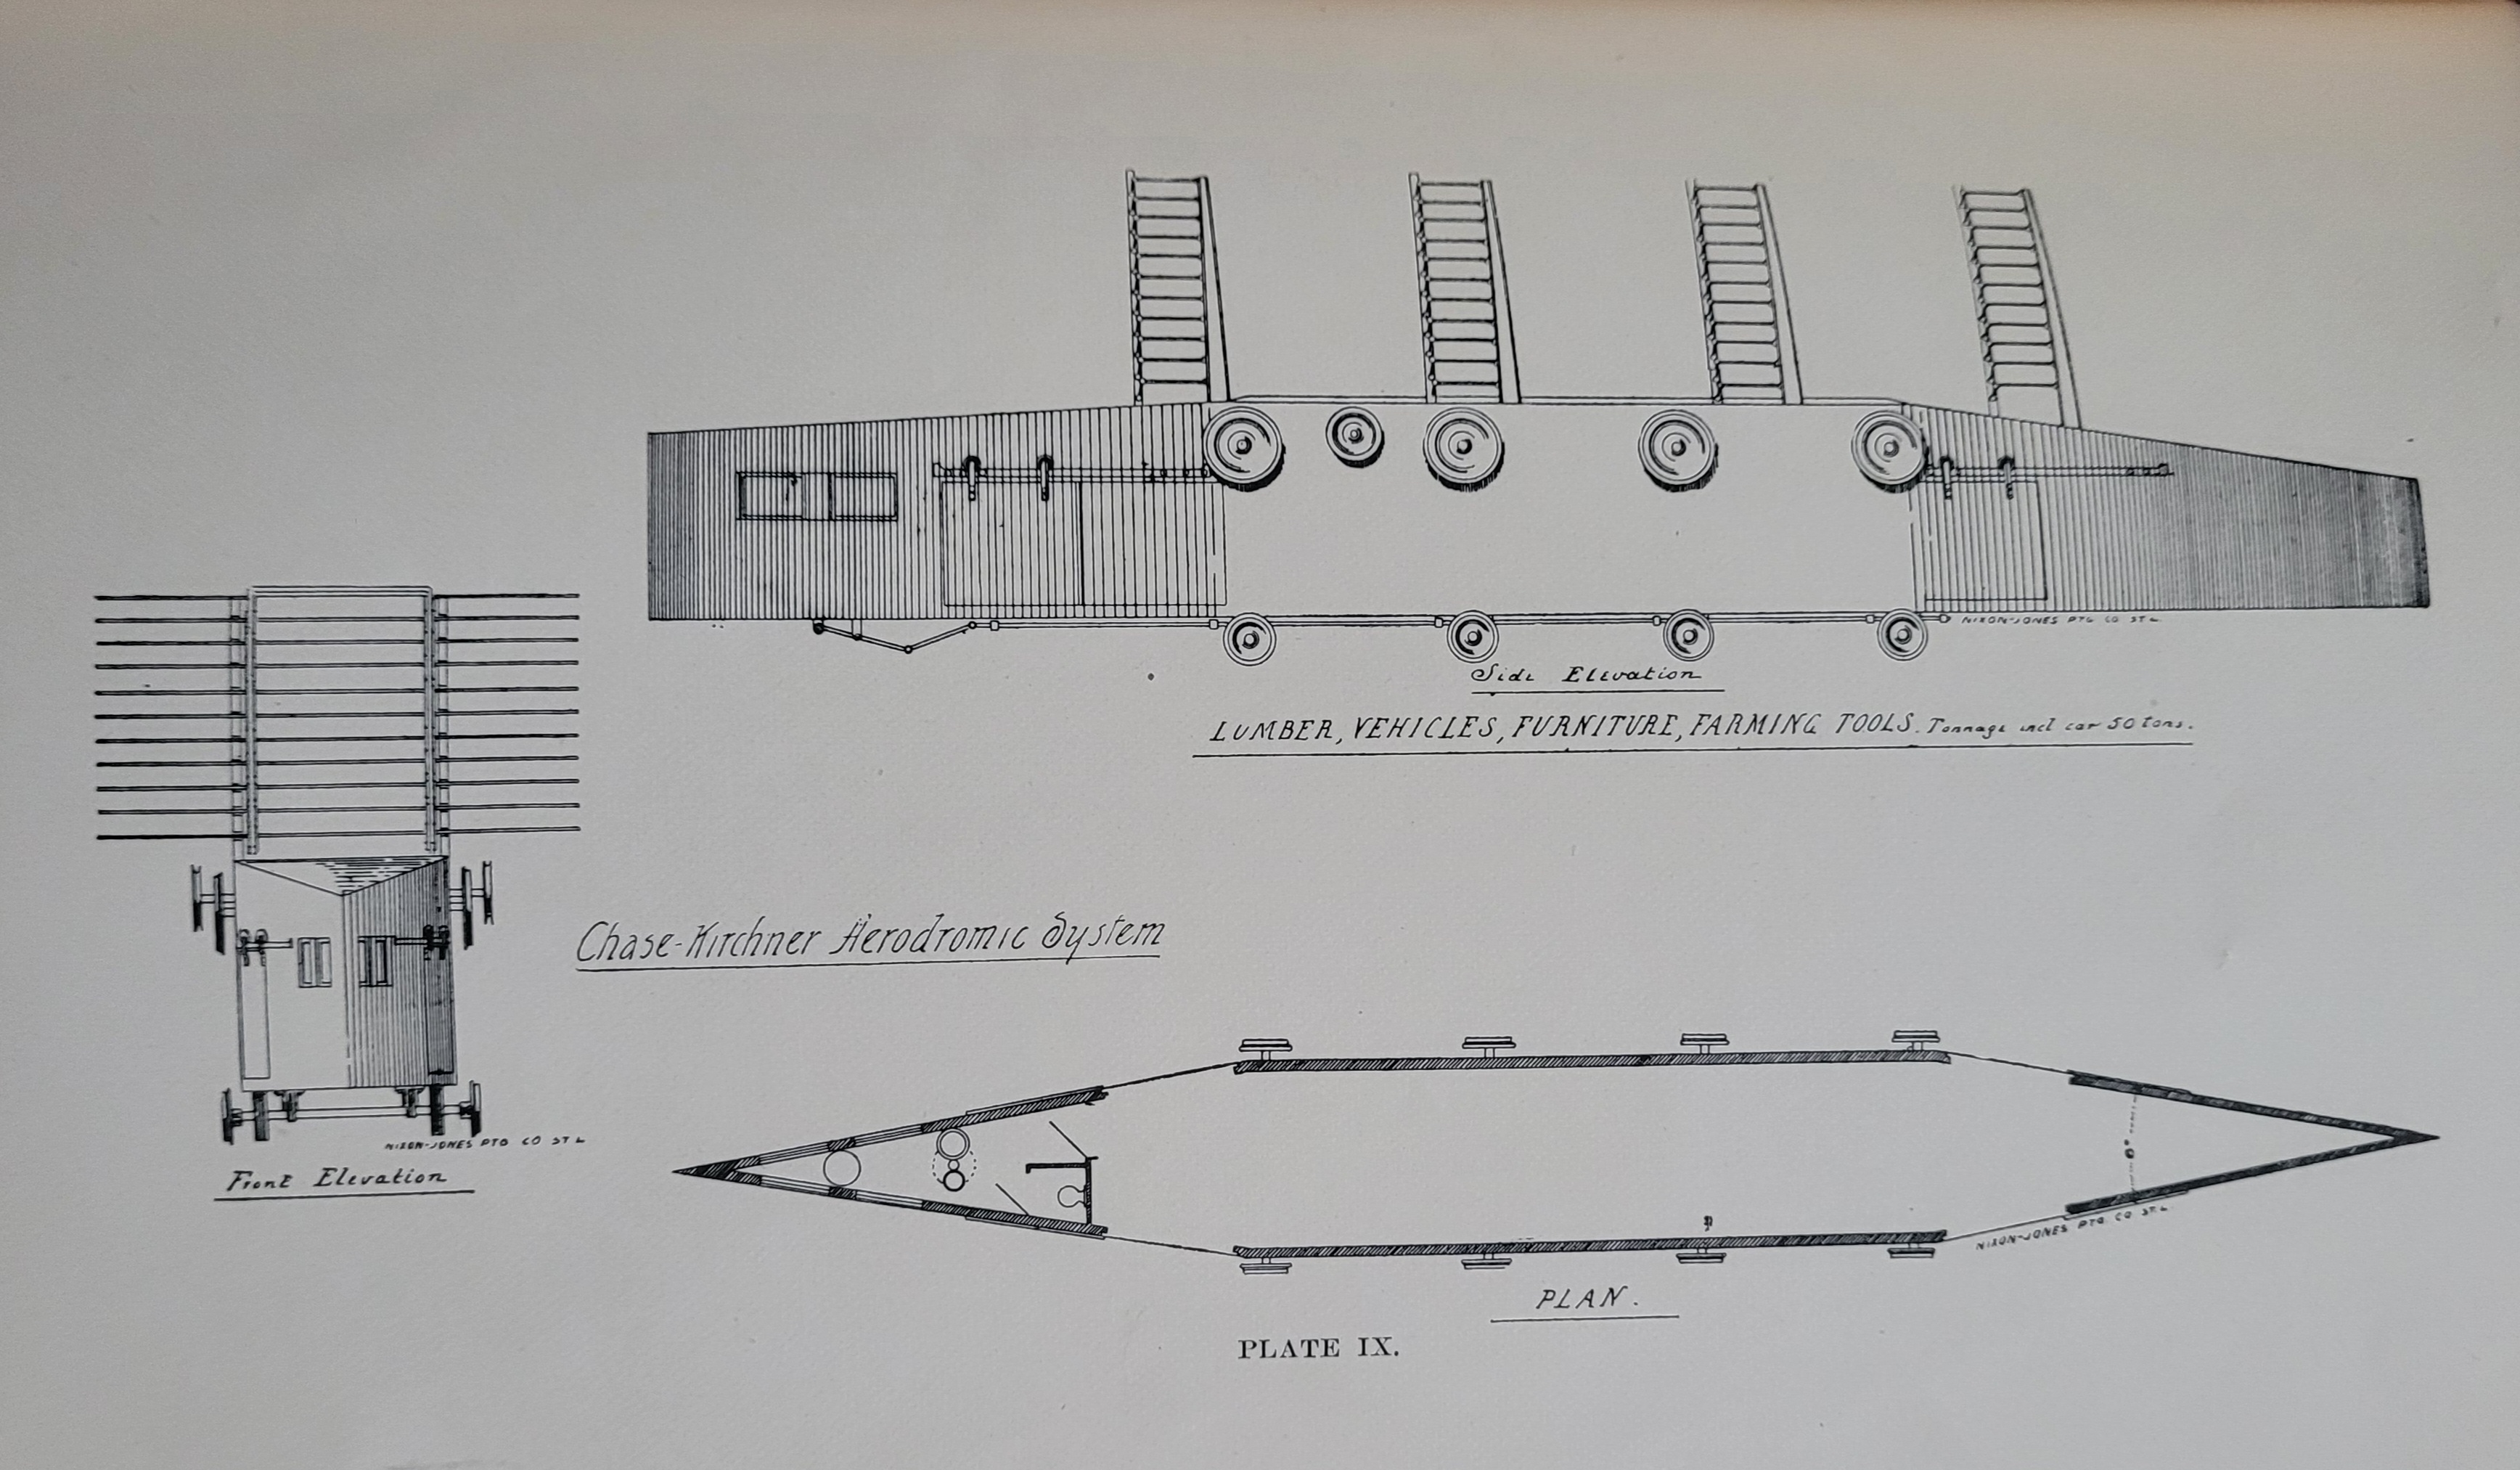 NIXON-JONES PTG CO ST L.
Side Elevation
LUMBER, VEHICLES, FURNITURE, FARMING TOOLS. Tonnage incl car 50 tons.
Chase-Kirchner Aerodromic System
NIXON-JONES PTG CO ST L
Front Elevation
NIXON-JONES PTG. CO ST.L.
PLAN.
PLATE IX.